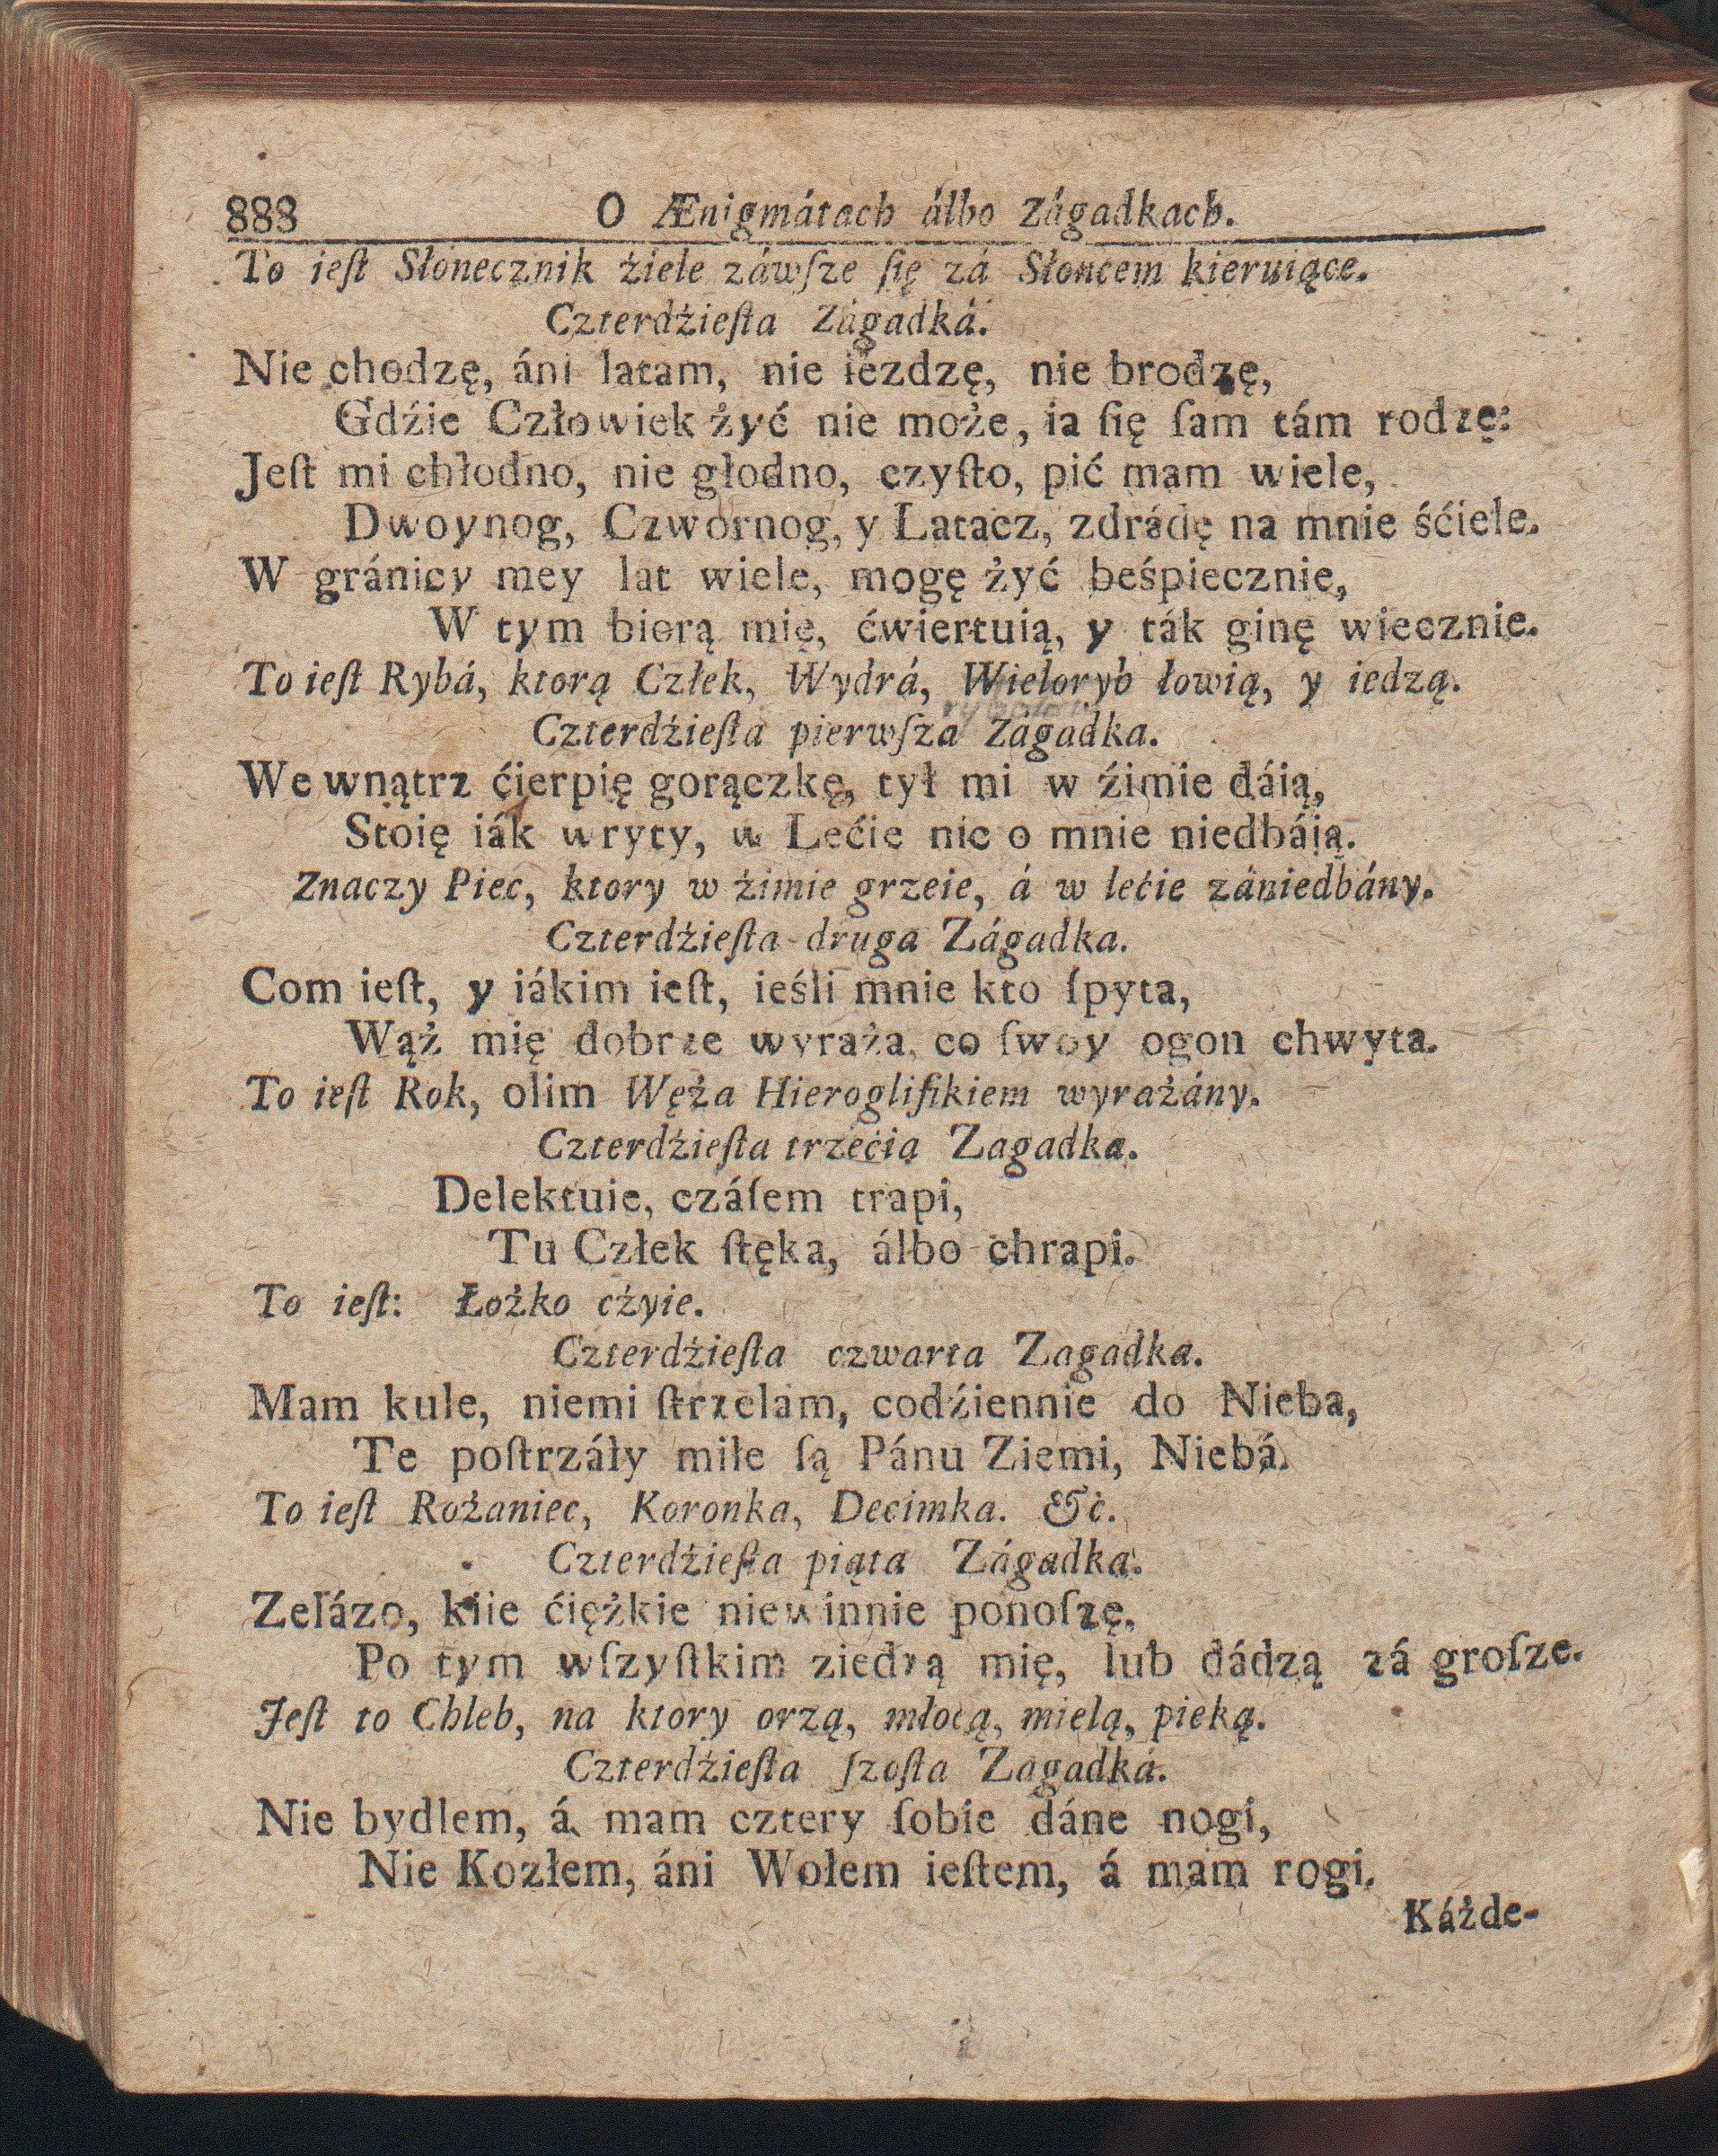 888 O Ænigmátach álbo Zágadkach.
To ieſt Słonecznik źiele záwſze ſię zá Słoncem kieruiące.
Czterdźieſta Zágadká.
Nie chodzę, áni latam, nie iezdzę, nie brodzę,
Gdźie Człowiek żyć nie może, ia ſię ſam tám rodzę:
Jeſt mi chłodno, nie głodno, czyſto, pić mam wiele,
Dwoynog, Czwornog, y Latacz, zdrádę na mnie śćiele.
W gránicy mey lat wiele, mogę żyć beśpiecznie,
W tym biorą mię, ćwiertuią, y ták ginę wiecznie.
To ieſt Rybá, ktorą Człek, Wydrá, Wieloryb łowią, y iedzą.
Czterdźieſta pierwſza Zágadka.
We wnątrz ćierpię gorączkę, tył mi w źimie dáią,
Stoię iák wryty, w Lećie nic o mnie niedbáią.
Znaczy Piec, ktory w źimie grzeie, á w lećie zániedbány.
Czterdźieſta druga Zágadka.
Com ieſt, y iákim ieſt, ieśli mnie kto ſpyta,
Wąż mię dobrze wyraża, co ſwoy ogon chwyta.
To ieſt Rok, olim Węża Hieroglifikiem wyrażány.
Czterdźieſta trzećia Zagadka.
Delektuie, czáſem trapi,
Tu Człek ſtęka, álbo chrapi.
To ieſt: Łożko cżyie.
Czterdźieſta czwarta Zagadka.
Mam kule, niemi ſtrzelam, codźiennie do Nieba,
Te poſtrzáły miłe ſą Pánu Ziemi, Niebá.
To ieſt Rożaniec, Koronka, Decimka. &c.
Czterdźieſta piąta Zágadka.
Zelázo, kiie ćiężkie niewinnie ponoſzę,
Po tym wſzyſtkim ziedzą mię, lub dádzą zá groſze.
Jeſt to Chleb, na ktory orzą, młocą, mielą, pieką.
Czterdźieſta ſzoſta Zagadká.
Nie bydlem, á mam cztery ſobie dáne nogi,
Nie Kozłem, áni Wołem ieſtem, á mam rogi.
Káżde-